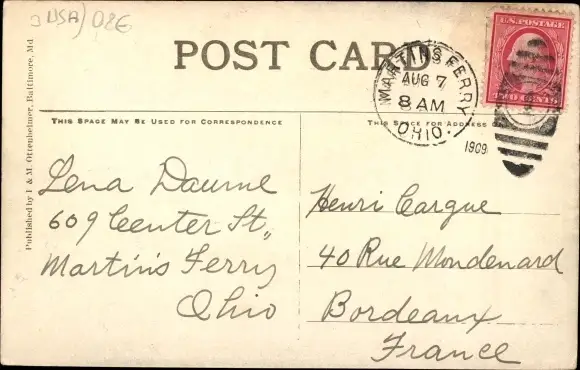 3 USA) 026
POST CARD
U.S. POSTAGE
TWO CENTS
MARTINS FERRY
AUG 7
8 AM
OHIO.
1909
THIS SPACE MAY BE USED FOR CORRESPONDENCE
THIS SPACE FOR ADDRESS
Published by I & M. Ottenheimer, Baltimore, Md.
Lena Daume
609 Center St,,
Martin's Ferry
Ohio
Henri Cargue
40 Rue Mondenard
Bordeaux
France